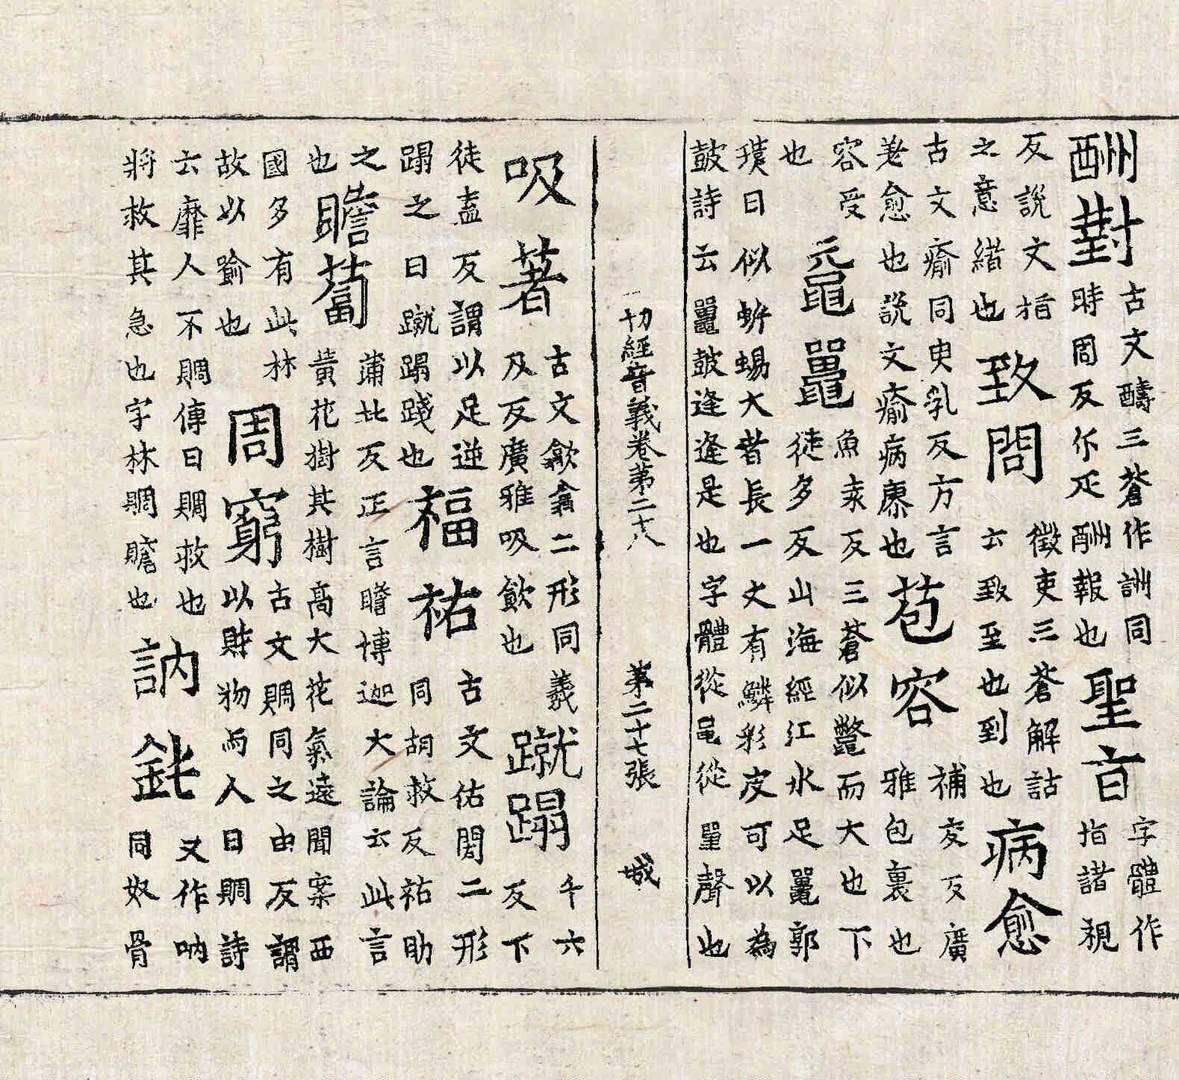 酬對古文醻三蒼作詶同時周反尒疋酬報也聖旨字體作指諸視
反說文指之意緒也致問徵吏三蒼解詁云致至也到也病愈
古文瘉同臾乳反方言差愈也說文瘉病瘳也苞容補交反廣雅包裹也
容受也黿鼉魚袁反三蒼似鼈而大也下徒多反山海經江水足鼉郭
璞曰似蜥蜴大者長一丈有鱗彩皮可以為鼓詩云鼉鼓逢逢是也字體從黽從單聲也
一切經音義卷第二十八 第二十七張 城
吸著古文歙翕二形同羲及反廣雅吸飲也蹴蹋千六反下
徒盍反謂以足逆蹋之曰蹴蹋踐也福祐古文佑閎二形同胡救反祐助
之也瞻蔔蒲北反正言瞻博迦大論云此言黃花樹其樹高大花氣遠聞案西
國多有此林故以喻也周窮古文賙同之由反謂以財物而人曰賙詩
云靡人不賙傳曰賙救也將救其急也字林賙贍也訥鈍又作吶同奴骨